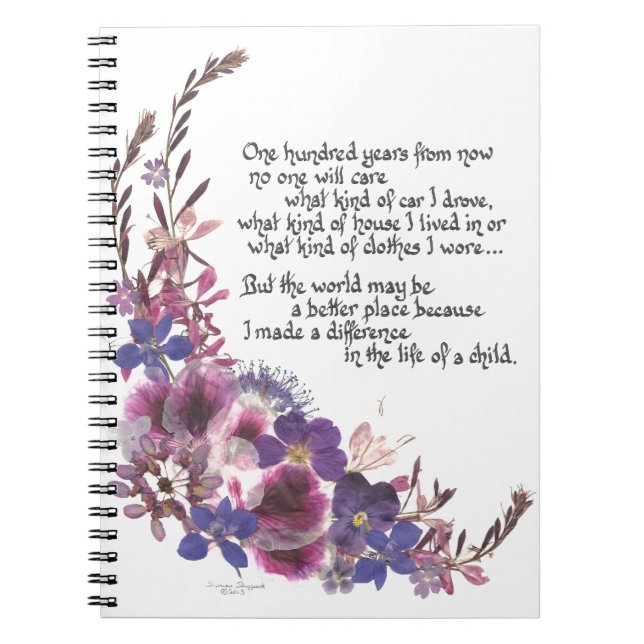 One hundred years from now
no one will care
what kind of car I drove,
what kind of house I lived in or
what kind of clothes I wore...
But the world may be
a better place because
I made a difference
in the life of a child.
©2015